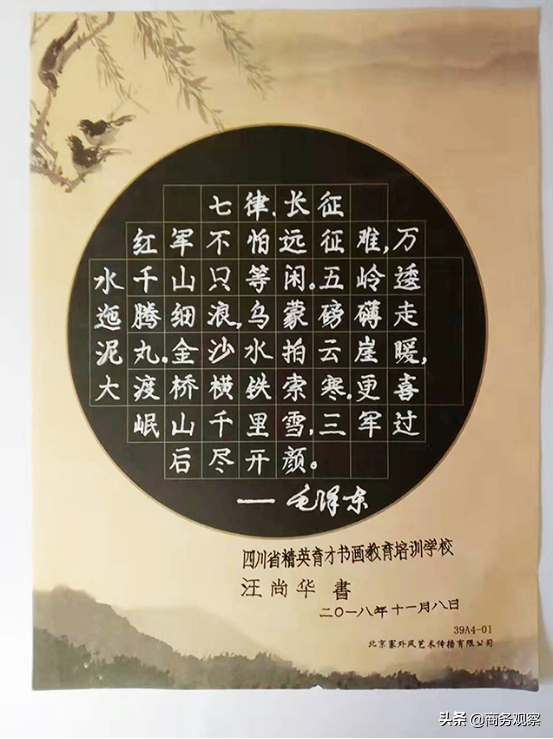 七律.长征
红军不怕远征难,万
水千山只等闲。五岭逶
迤腾细浪,乌蒙磅礴走
泥丸。金沙水拍云崖暖,
大渡桥横铁索寒。更喜
岷山千里雪,三军过
后尽开颜。
——毛泽东
四川省精英育才书画教育培训学校
汪尚华 書
二〇一八年十一月八日
39A4-01
北京塞外风艺术传播有限公司
头条 @商务观察